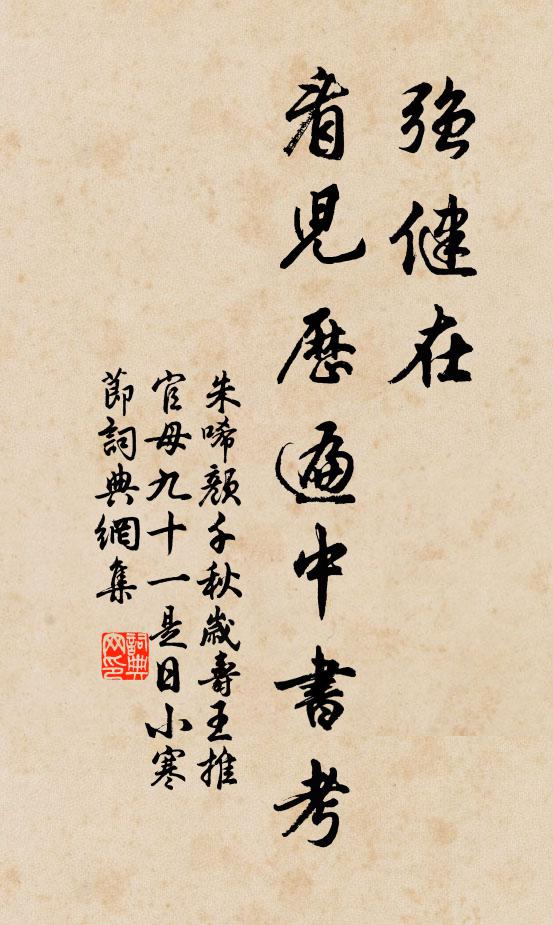 強健在
看兒歷遍中書考
朱晞顏千秋歲壽王推
官母九十一是日小寒
節詞典網集
詞典
网印